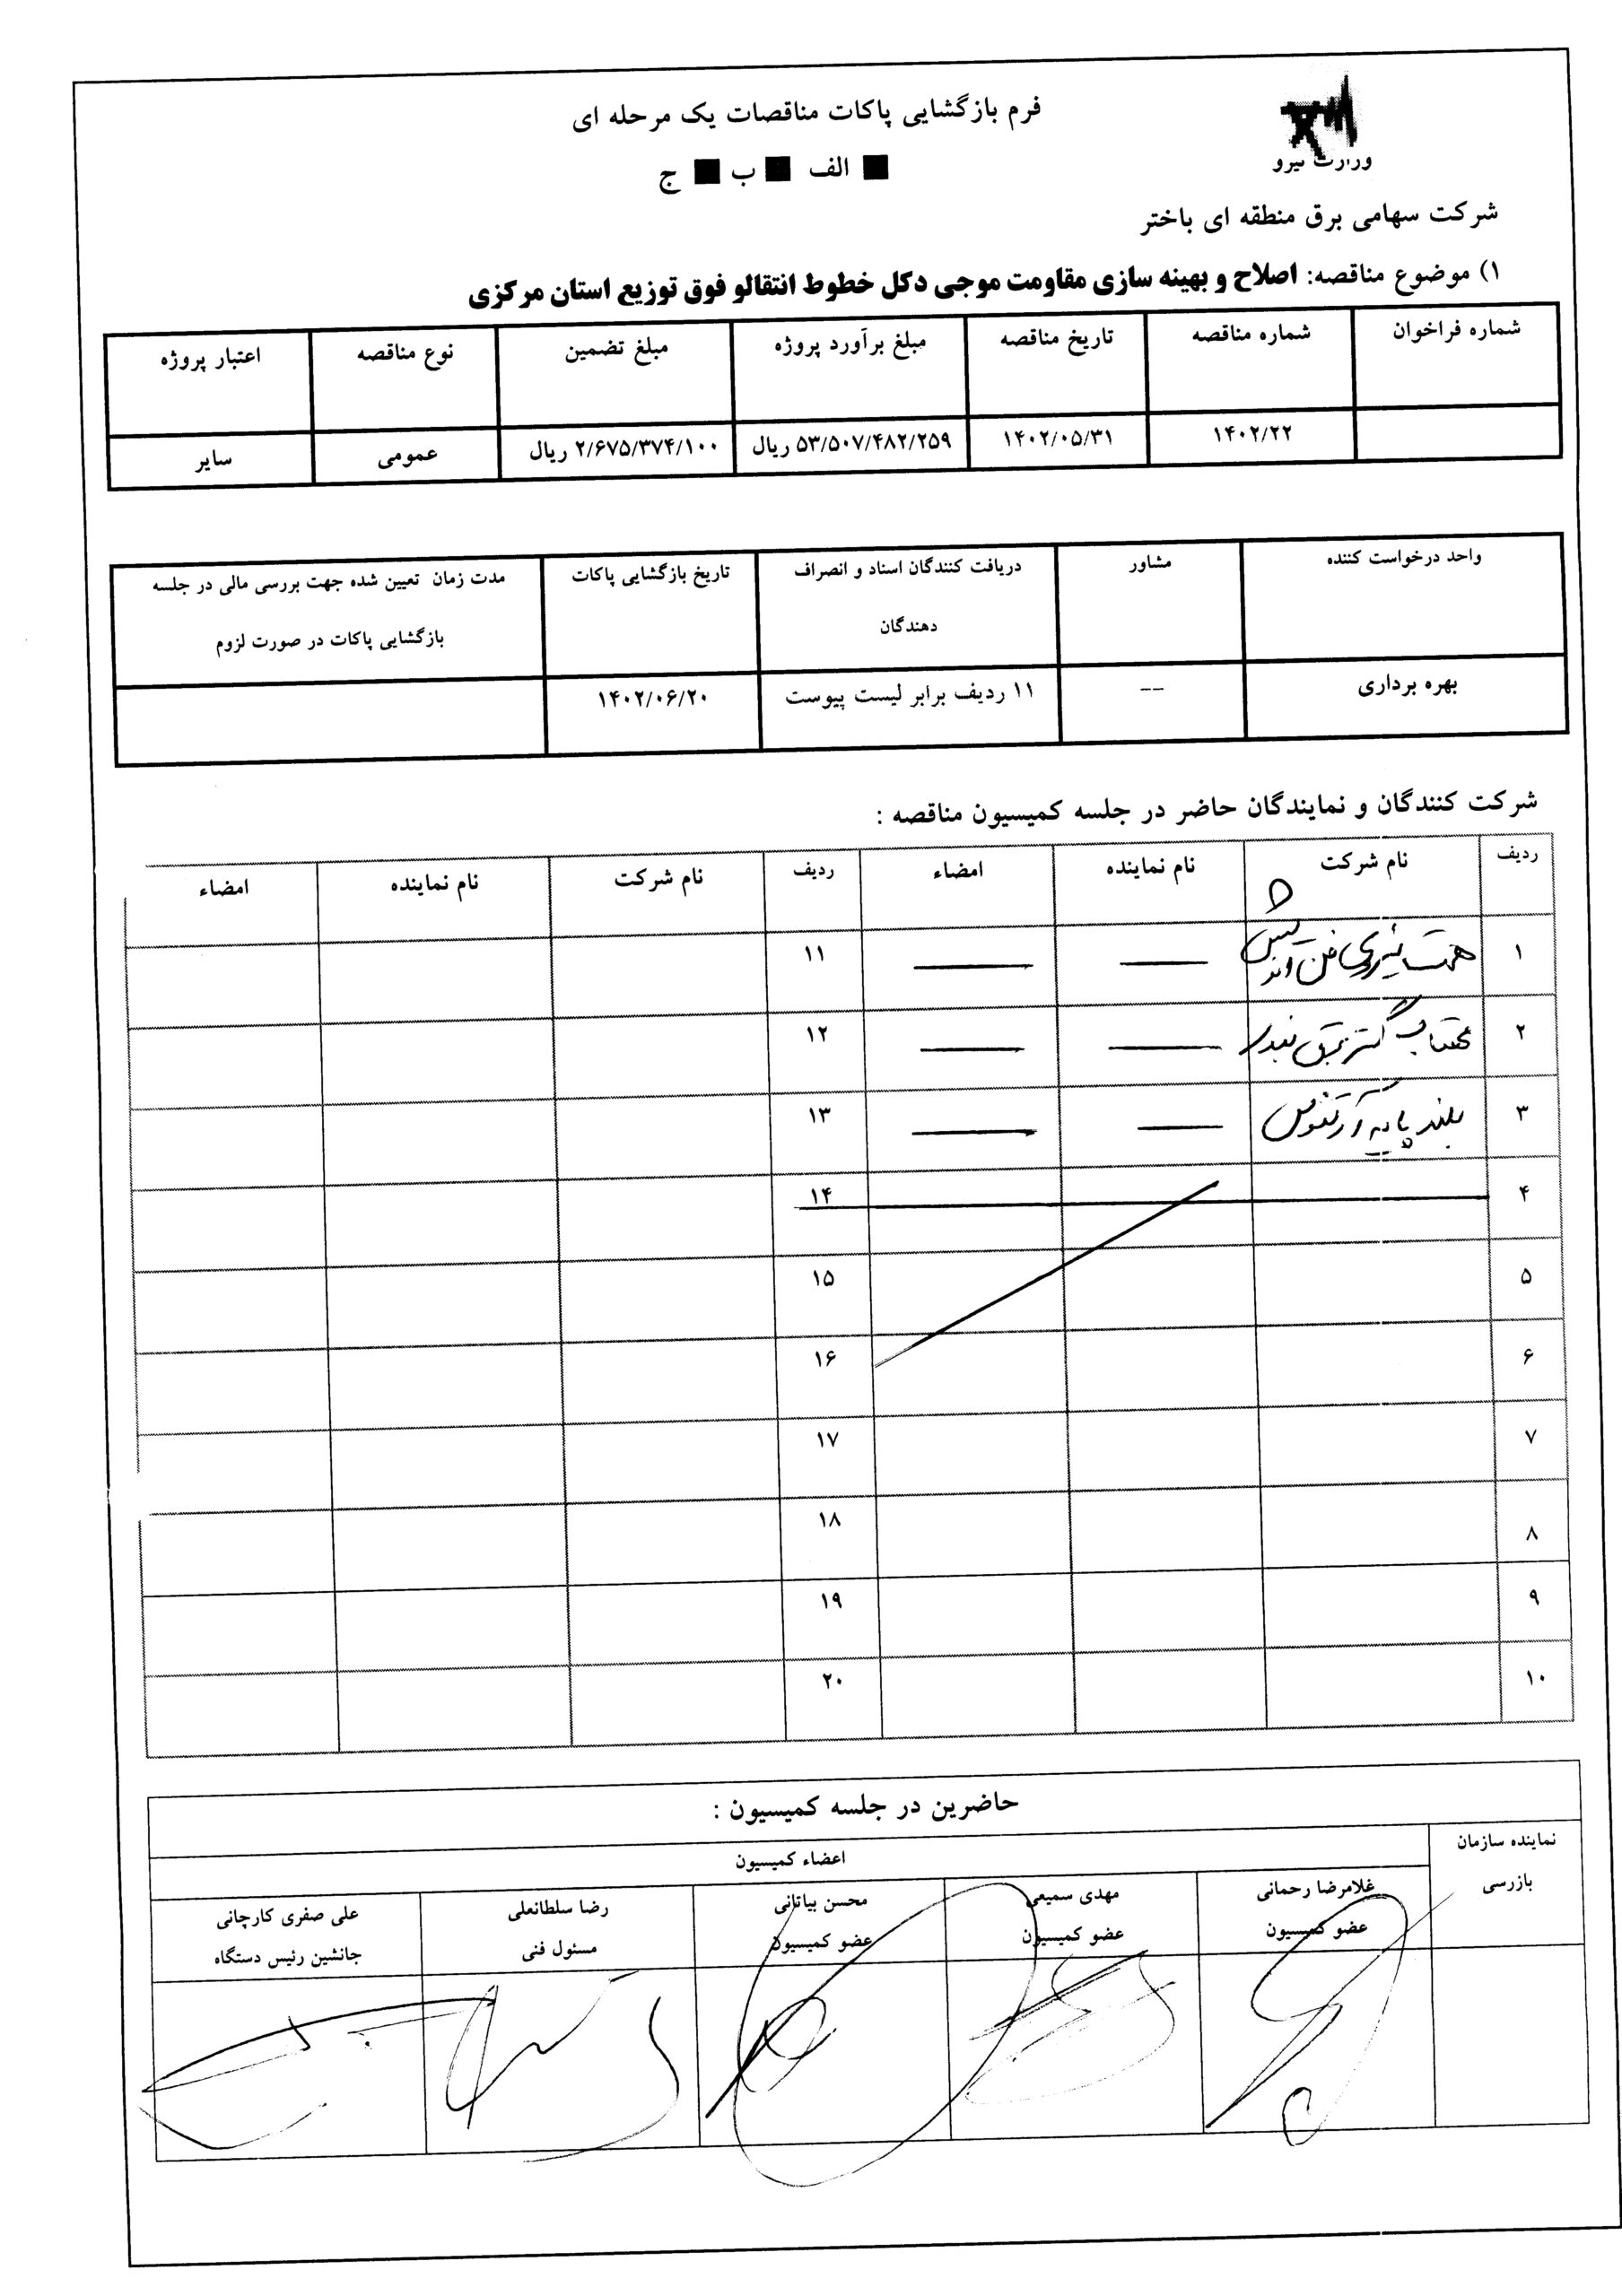 فرم بازگشایی پاکات مناقصات یک مرحله ای
وزارت نیرو
■ الف ■ ب ■ ج
شرکت سهامی برق منطقه ای باختر
۱) موضوع مناقصه: اصلاح و بهینه سازی مقاومت موجی دکل خطوط انتقالو فوق توزیع استان مرکزی
شماره فراخوان شماره مناقصه تاریخ مناقصه مبلغ برآورد پروژه مبلغ تضمین نوع مناقصه اعتبار پروژه
۱۴۰۲/۲۲ ۱۴۰۲/۰۵/۳۱ ۵۳/۵۰۷/۴۸۲/۲۵۹ ریال ۲/۶۷۵/۳۷۴/۱۰۰ ریال عمومی سایر
واحد درخواست کننده مشاور دریافت کنندگان اسناد و انصراف تاریخ بازگشایی پاکات مدت زمان تعیین شده جهت بررسی مالی در جلسه
دهندگان بازگشایی پاکات در صورت لزوم
بهره برداری -- ۱۱ ردیف برابر لیست پیوست ۱۴۰۲/۰۶/۲۰
شرکت کنندگان و نمایندگان حاضر در جلسه کمیسیون مناقصه :
ردیف نام شرکت نام نماینده امضاء ردیف نام شرکت نام نماینده امضاء
۱ همت نیروی فن اندیش ۱۱
۲ گستر برق ۱۲
۳ بلند پایه آر ققنوس ۱۳
۴ ۱۴
۵ ۱۵
۶ ۱۶
۷ ۱۷
۸ ۱۸
۹ ۱۹
۱۰ ۲۰
حاضرین در جلسه کمیسیون :
نماینده سازمان
بازرسی
اعضاء کمیسیون
غلامرضا رحمانی مهدی سمیعی محسن بیاتانی رضا سلطانعلی علی صفری کارچانی
عضو کمیسیون عضو کمیسیون عضو کمیسیون مسئول فنی جانشین رئیس دستگاه